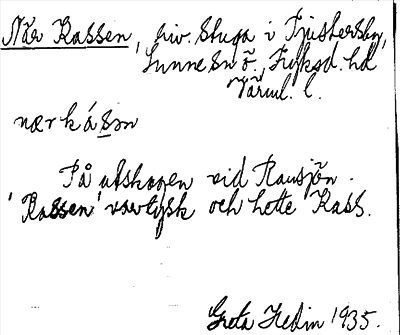 När Kassen, riv. stuga i Tjustersby,
Sunne sn ö., Fryksd. hd
Värml. l.
nær kásṃn
På utskogen vid Rausjön.
'Kassen' var tysk och hette Kass.
Greta Hedin 1935.